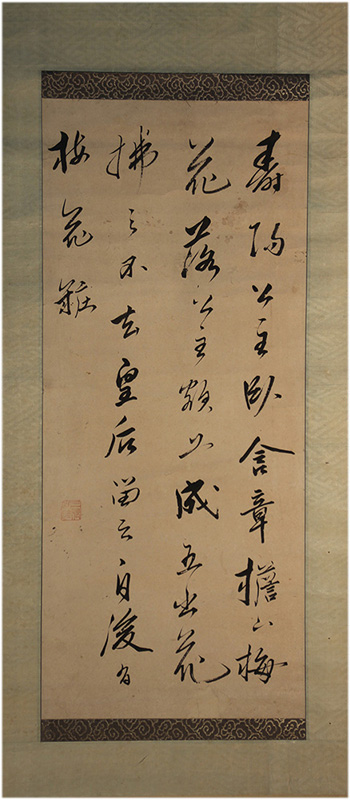 壽陽公主臥含章檐下梅
花落公主額上成五出花
拂之不去皇后留之自後有
梅花粧